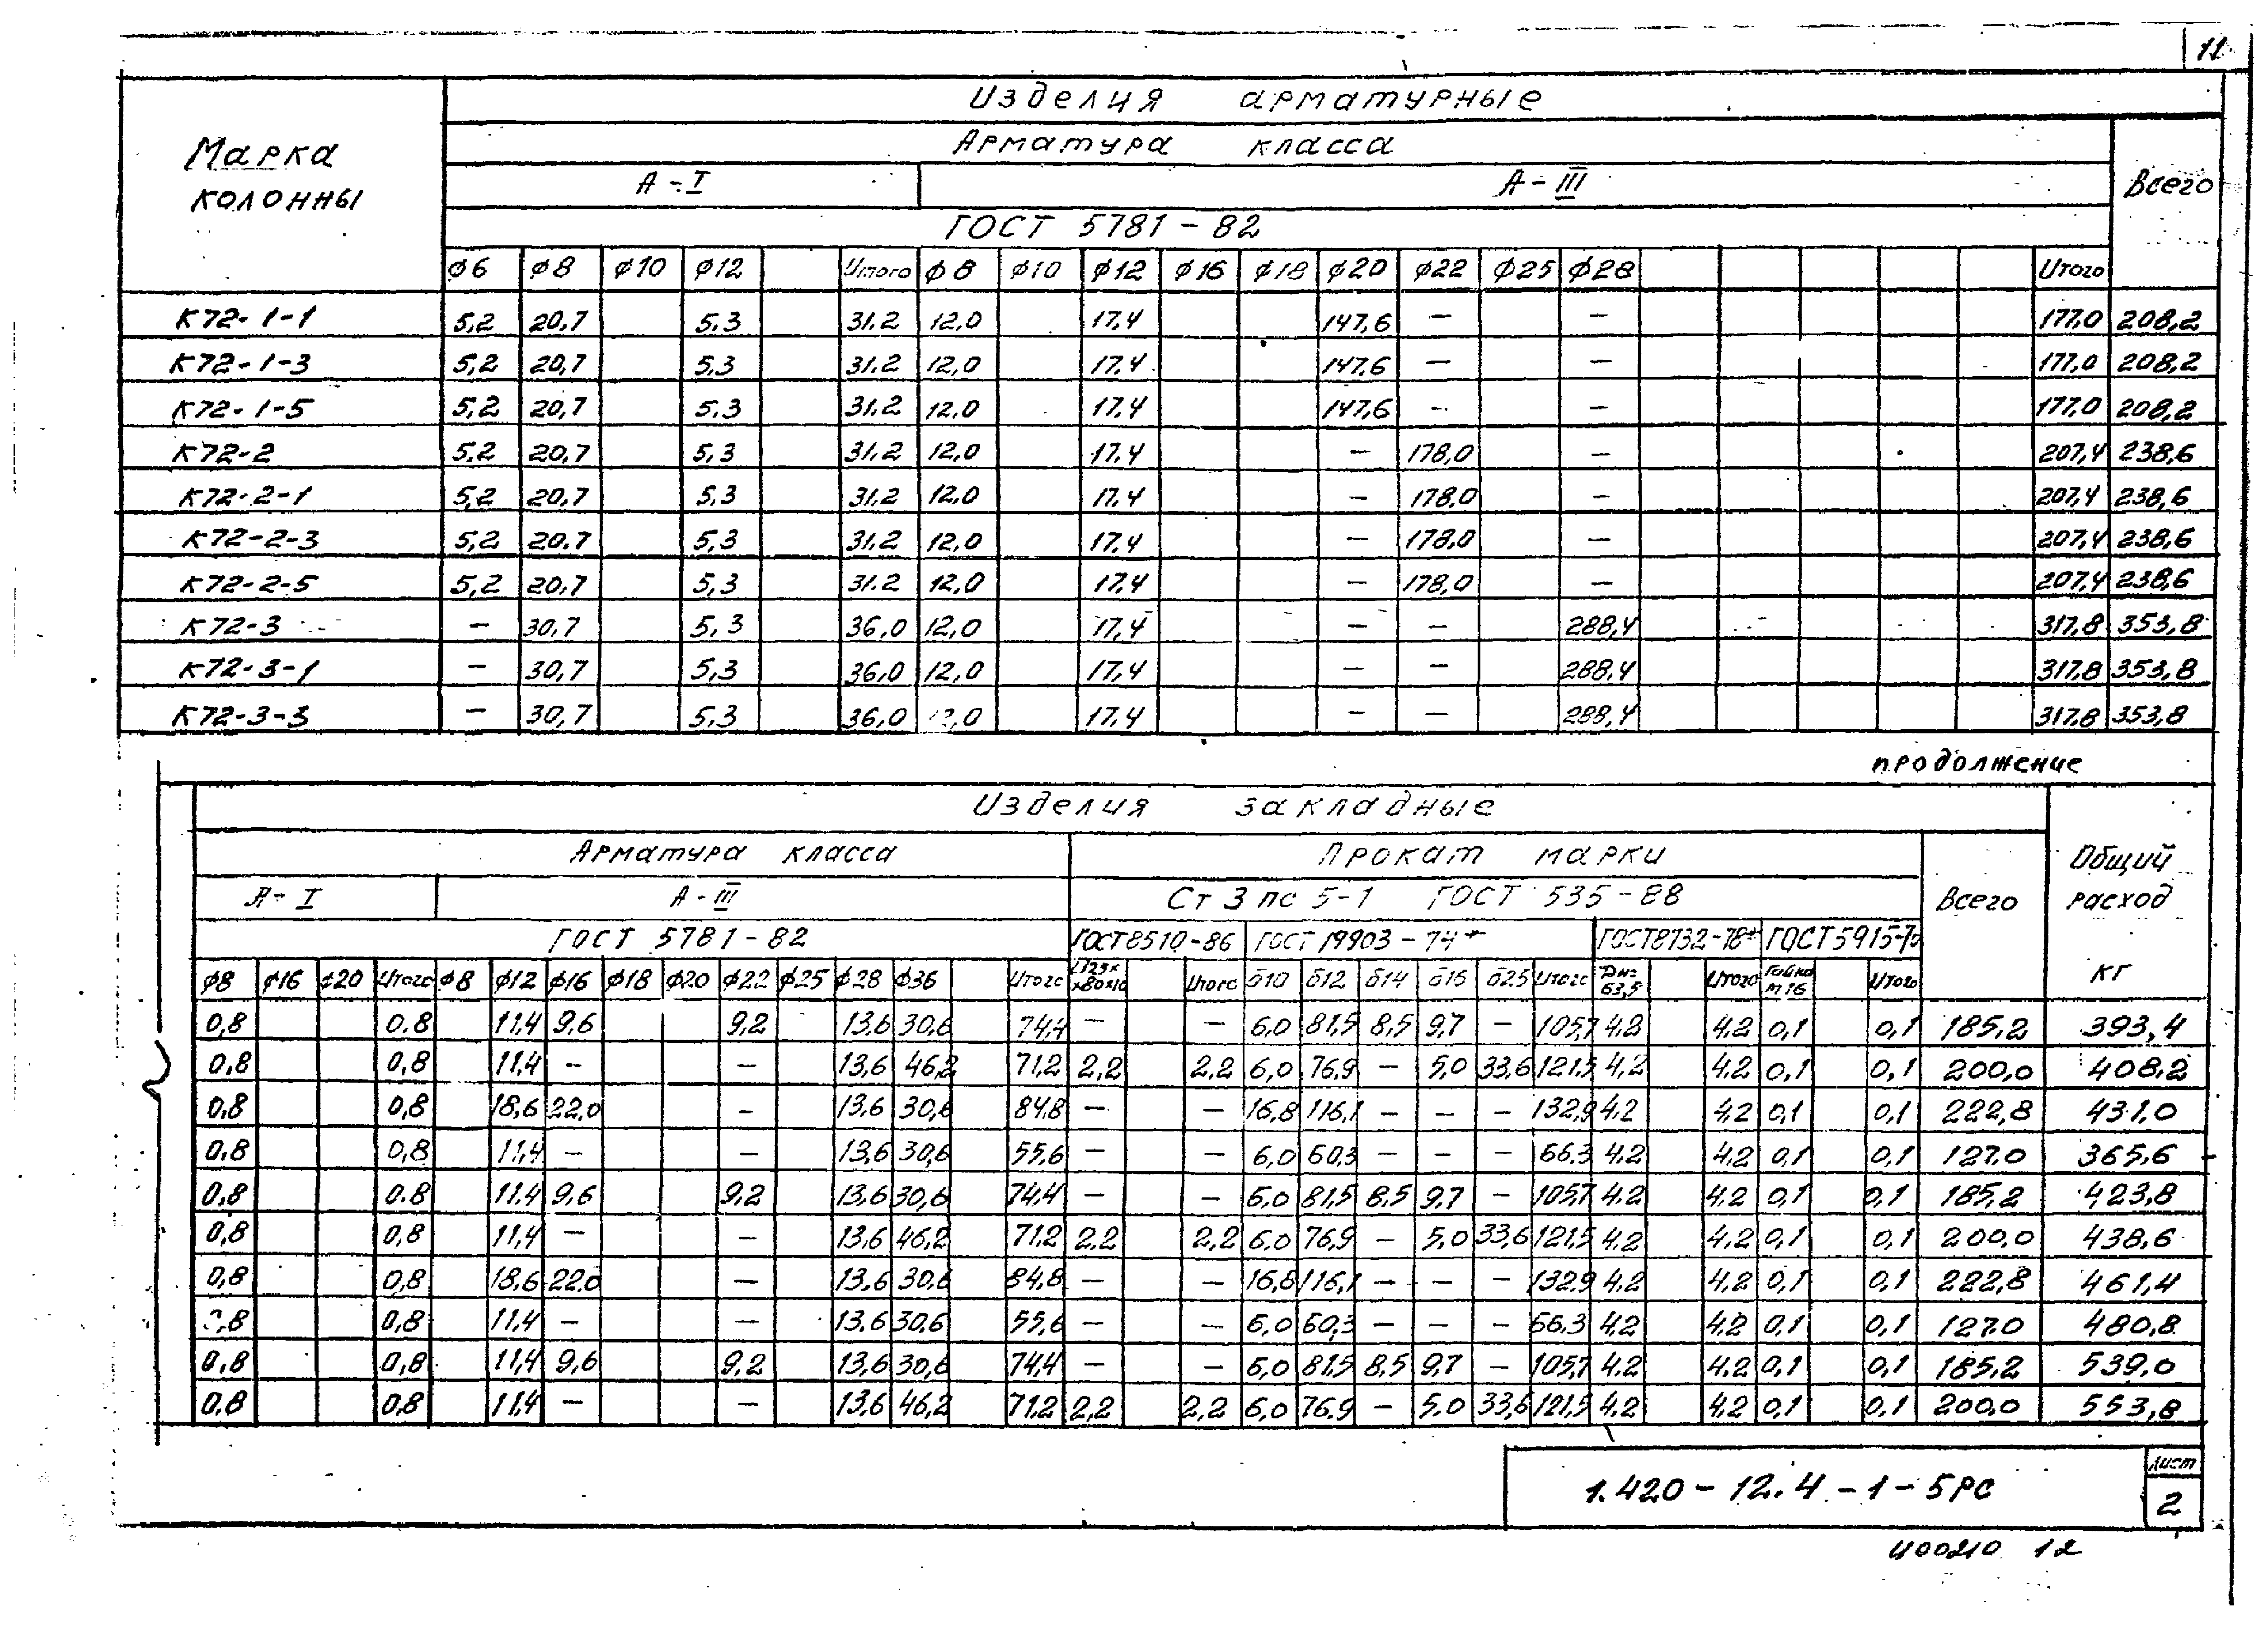 11
Изделия арматурные
Марка колонны
Арматура класса
Всего
А-I А-III
ГОСТ 5781-82
ф6 ф8 ф10 ф12 Итого ф8 ф10 ф12 ф16 ф18 ф20 ф22 ф25 ф28 Итого
К72-1-1 5,2 20,7 5,3 31,2 12,0 17,4 147,6 — — 177,0 208,2
К72-1-3 5,2 20,7 5,3 31,2 12,0 17,4 147,6 — — 177,0 208,2
К72-1-5 5,2 20,7 5,3 31,2 12,0 17,4 147,6 — — 177,0 208,2
К72-2 5,2 20,7 5,3 31,2 12,0 17,4 — 178,0 — 207,4 238,6
К72-2-1 5,2 20,7 5,3 31,2 12,0 17,4 — 178,0 — 207,4 238,6
К72-2-3 5,2 20,7 5,3 31,2 12,0 17,4 — 178,0 — 207,4 238,6
К72-2-5 5,2 20,7 5,3 31,2 12,0 17,4 — 178,0 — 207,4 238,6
К72-3 — 30,7 5,3 36,0 12,0 17,4 — — 288,4 317,8 353,8
К72-3-1 — 30,7 5,3 36,0 12,0 17,4 — — 288,4 317,8 353,8
К72-3-3 — 30,7 5,3 36,0 12,0 17,4 — — 288,4 317,8 353,8
продолжение
Изделия закладные
Арматура класса Прокат марки
Всего
Общий расход кг
А-I А-III Ст 3 пс 5-1 ГОСТ 535-88
ГОСТ 5781-82 ГОСТ 8510-86 ГОСТ 19903-74* ГОСТ 8732-78* ГОСТ 5915-70
ф8 ф16 ф20 Итого ф8 ф12 ф16 ф18 ф20 ф22 ф25 ф28 ф36 Итого L125x x80x10 Итого δ10 δ12 δ14 δ16 δ25 Итого Dн= 63,5 Итого Гайка М16 Итого
0,8 0,8 11,4 9,6 9,2 13,6 30,6 74,4 — — 6,0 81,5 8,5 9,7 — 105,7 4,2 4,2 0,1 0,1 185,2 393,4
0,8 0,8 11,4 — — 13,6 46,2 71,2 2,2 2,2 6,0 76,9 — 5,0 33,6 121,5 4,2 4,2 0,1 0,1 200,0 408,2
0,8 0,8 18,6 22,0 — 13,6 30,6 84,8 — — 16,8 116,1 — — — 132,9 4,2 4,2 0,1 0,1 222,8 431,0
0,8 0,8 11,4 — — 13,6 30,6 55,6 — — 6,0 60,3 — — — 66,3 4,2 4,2 0,1 0,1 127,0 365,6
0,8 0,8 11,4 9,6 9,2 13,6 30,6 74,4 — — 6,0 81,5 8,5 9,7 — 105,7 4,2 4,2 0,1 0,1 185,2 423,8
0,8 0,8 11,4 — — 13,6 46,2 71,2 2,2 2,2 6,0 76,9 — 5,0 33,6 121,5 4,2 4,2 0,1 0,1 200,0 438,6
0,8 0,8 18,6 22,0 — 13,6 30,6 84,8 — — 16,8 116,1 — — — 132,9 4,2 4,2 0,1 0,1 222,8 461,4
0,8 0,8 11,4 — — 13,6 30,6 55,6 — — 6,0 60,3 — — — 66,3 4,2 4,2 0,1 0,1 127,0 480,8
0,8 0,8 11,4 9,6 9,2 13,6 30,6 74,4 — — 6,0 81,5 8,5 9,7 — 105,7 4,2 4,2 0,1 0,1 185,2 539,0
0,8 0,8 11,4 — — 13,6 46,2 71,2 2,2 2,2 6,0 76,9 — 5,0 33,6 121,5 4,2 4,2 0,1 0,1 200,0 553,8
1.420-12.4-1-5РС
Лист
2
Ц00210 12